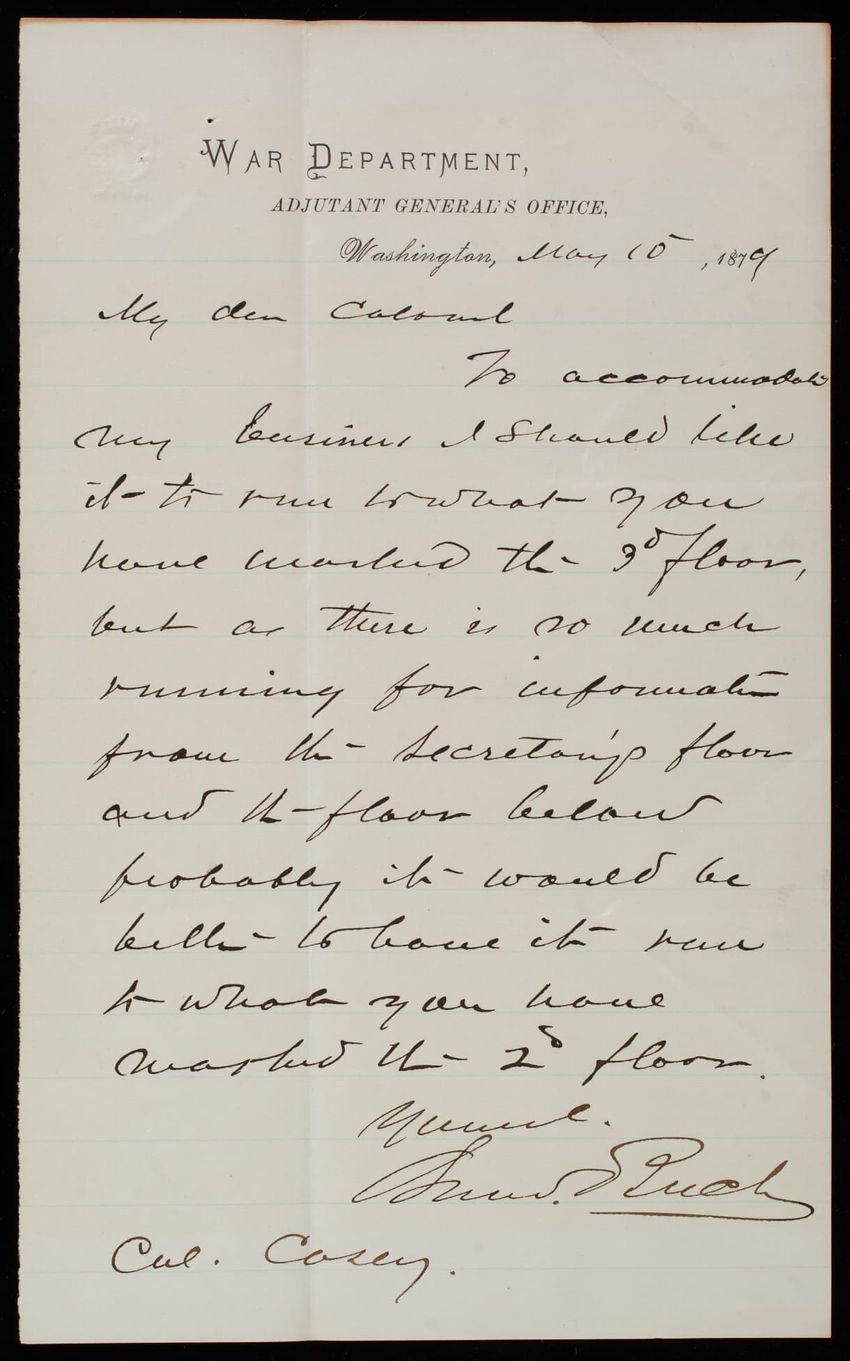 WAR DEPARTMENT,
ADJUTANT GENERAL'S OFFICE,
Washington, May 15, 1879
My dear Colonel
To accommodate
my business I should like
it to run to what you
have marked the 3d floor,
but as there is so much
running for information
from the Secretary's floor
and the floor below
probably it would be
better to have it run
to what you have
marked the 2d floor.
Yours
Col. Casey.